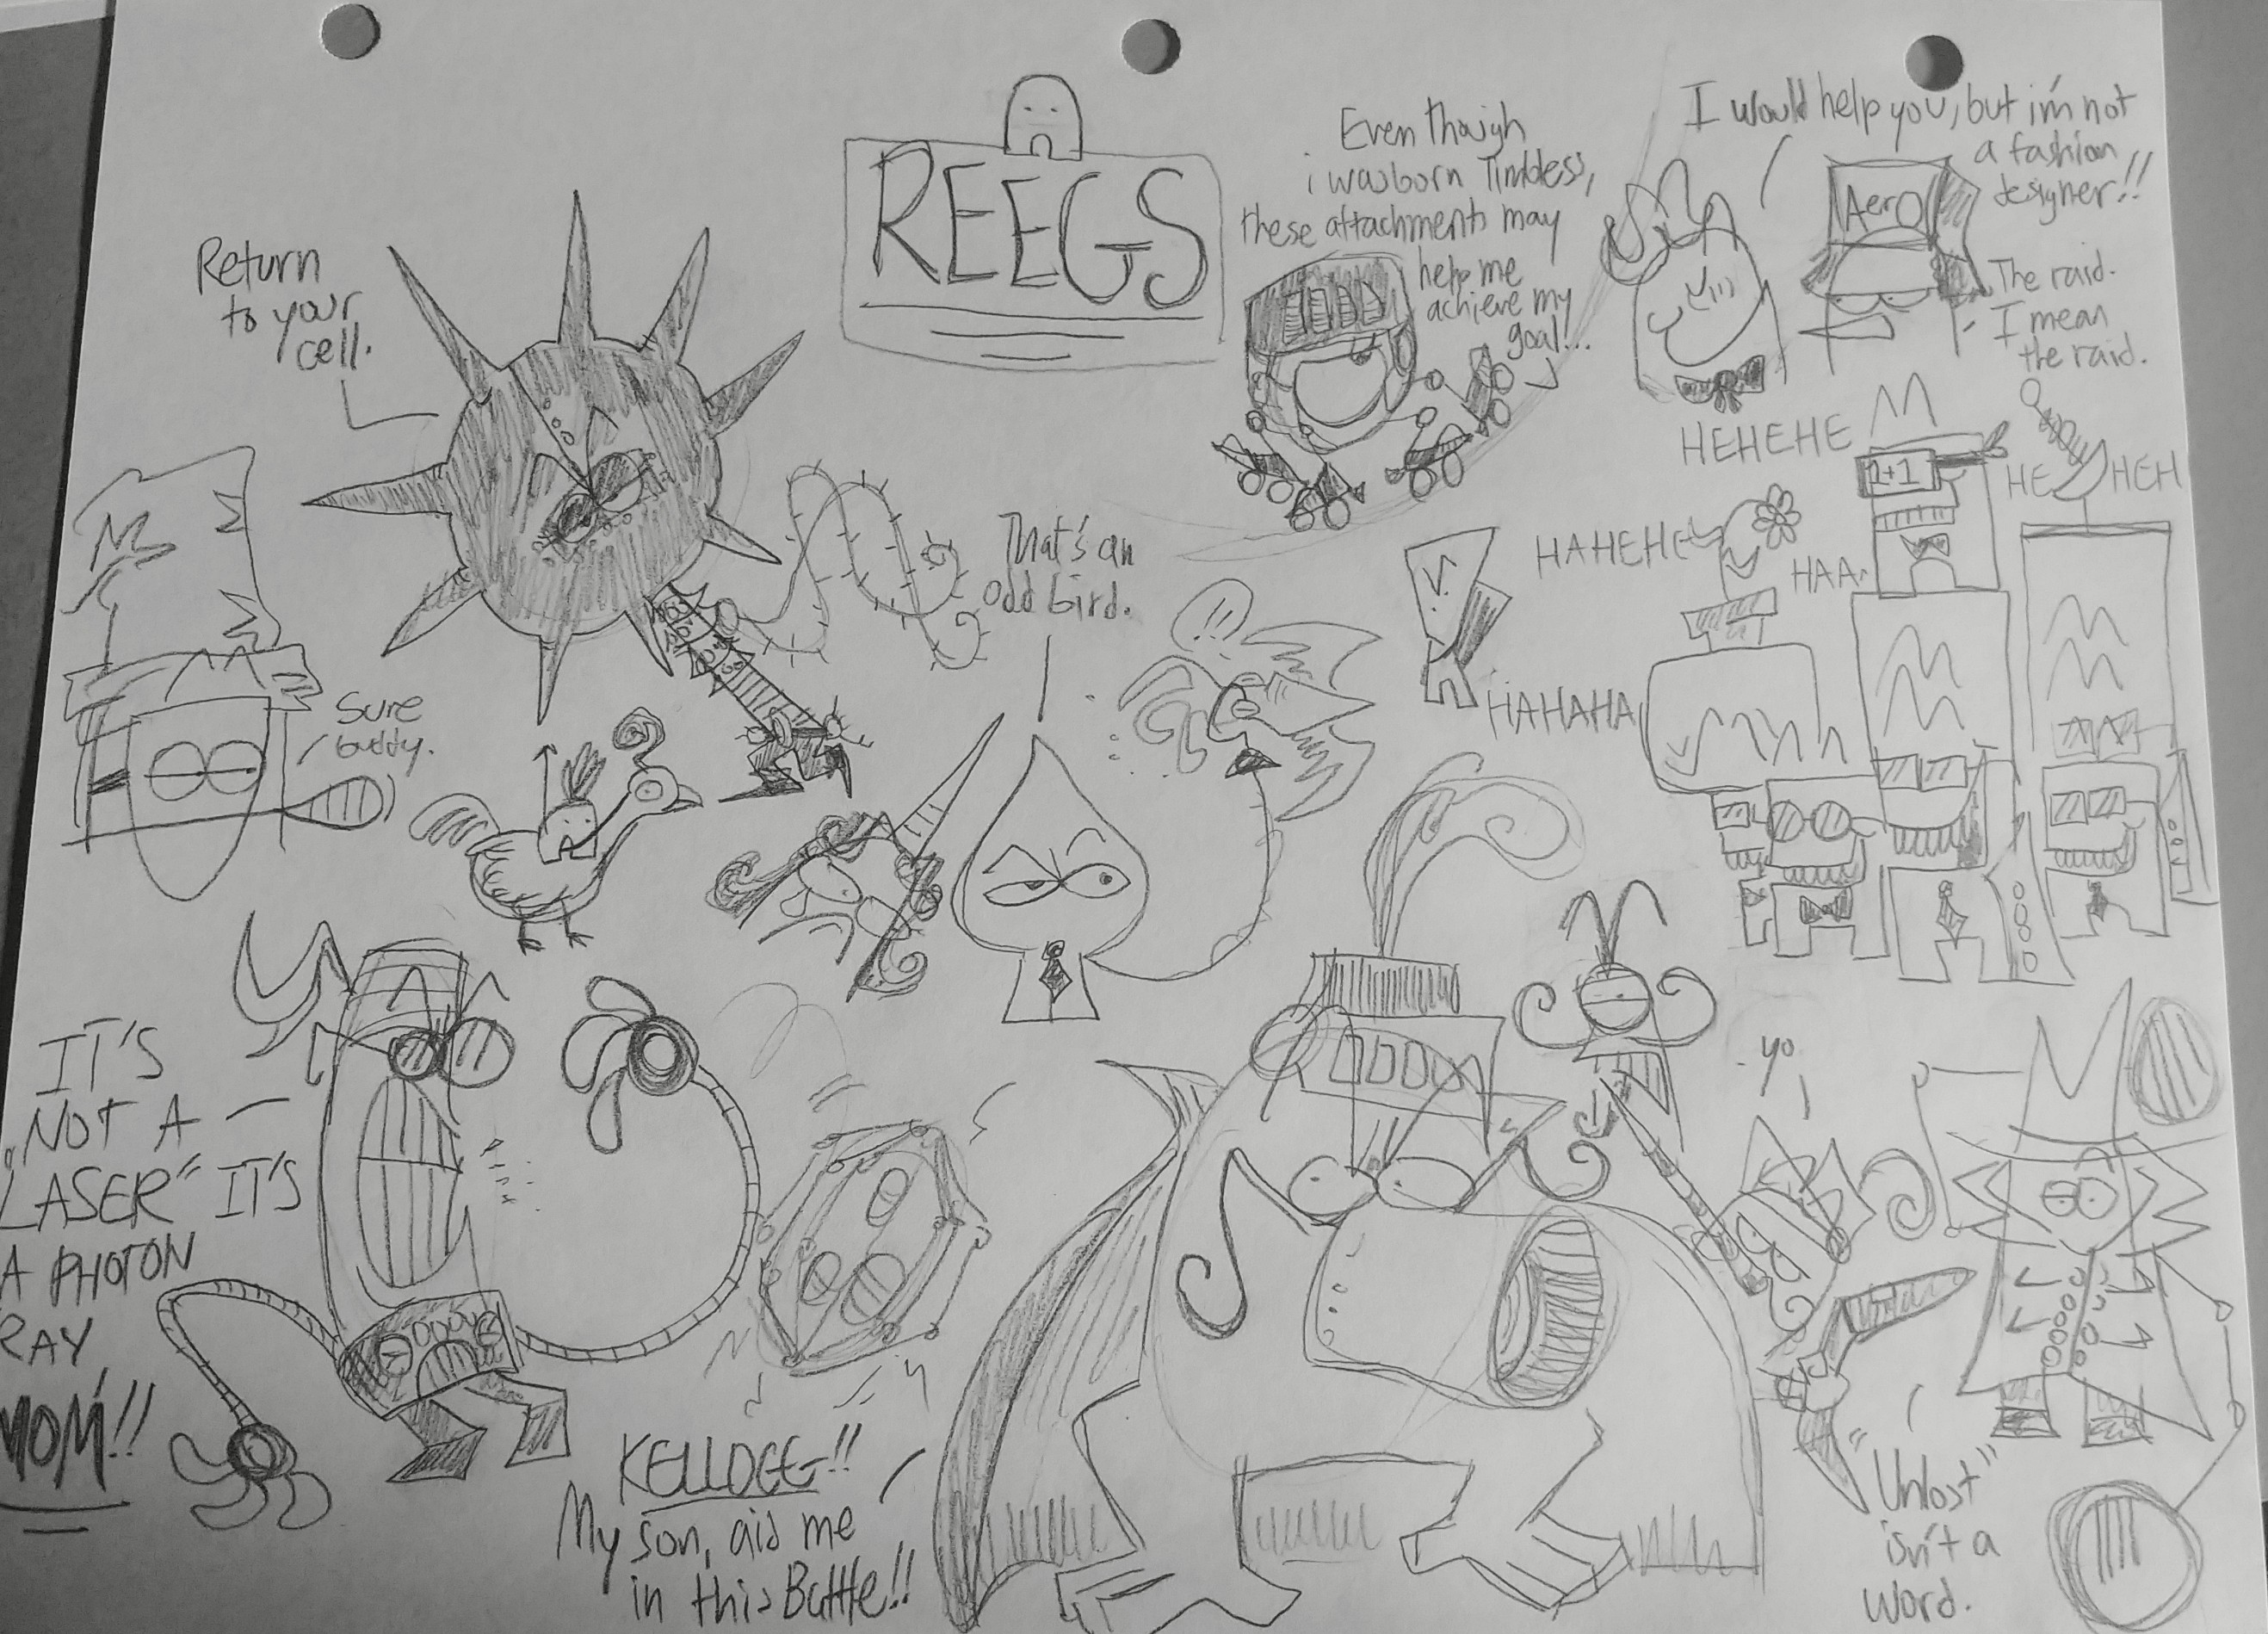 REEGS
Return
to your
cell.
Even though
i was born limbless,
these attachments may
help me
achieve my
goal!...
I would help you, but i'm not
a fashion
designer!!
Aero
The raid.
I mean
the raid.
HEHEHE
2+1
HE
HEH
HAHEHE
HAA
HAHAHA
That's an
odd bird.
Sure
buddy.
IT'S
NOT A
"LASER" IT'S
A PHOTON
RAY
MOM!!
yo
KELLOGG!!
My son, aid me
in this Battle!!
"Unlost"
isn't a
word.